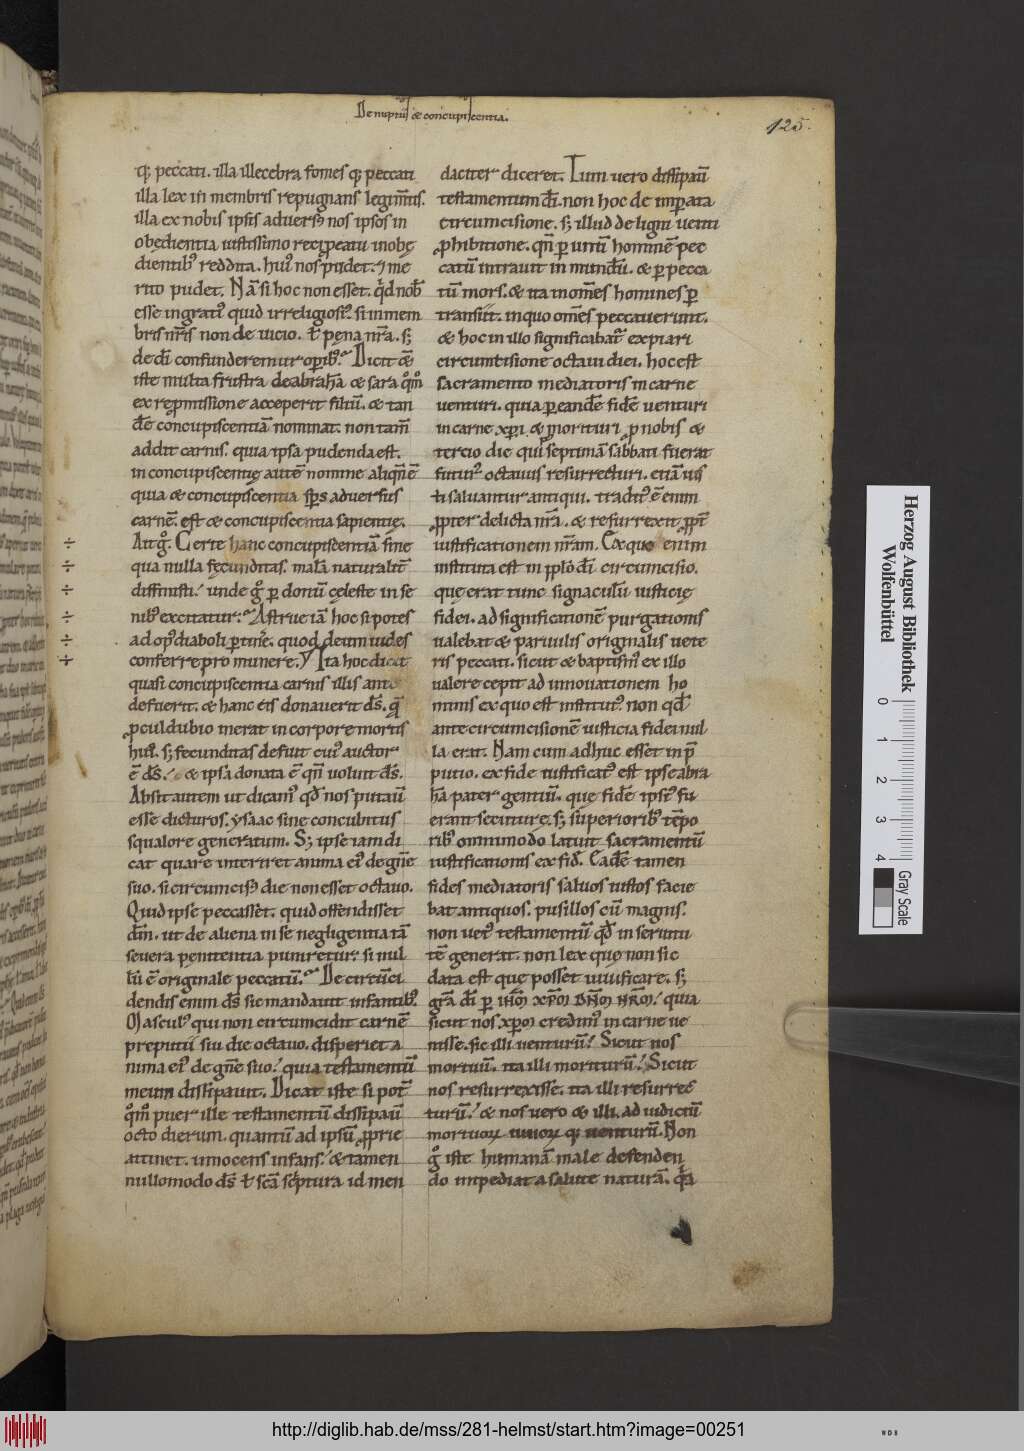 De nuptiis & concupiscentia.
125.
q; peccati. illa illecebra fomesq; peccati
illa lex in membris repugnans legi m̅tis.
illa ex nobis ipsis adversus nos ipsos in
obędientia iustissimo recip̱eatu inobę
dientib; reddita. hui᷒ nos pudet. & me
rito pudet. Nā si hoc non esset. qd nob̄
esse ingrati᷒ quid irreligiosi᷒. si in mem
bris nr̄is non de uicio. ł pena nr̄a. s;
de dī confunderemur operib;. Dicit &
iste multa frustra de abrahā & sara qm̄
ex repromissione acceperit filiū. & tan
dē concupiscentiā nominat. non tam̄
addit carnis. quia ipsa pudenda est.
in concupiscentię autē nomine aliqn̄ ē
quia & concupiscentia sp̄s adversus
carnē. est & concupiscentia sapientię.
Ait g̊. Certe hanc concupiscentiā sine
qua nulla fęcunditas. malā naturalit̄
diffinisti. unde g̊ p donū cęleste in se
nib; excitatur. Astrue iā hoc si potes
ad op᷒ diaboli ptinere. quod deum uides
conferre pro munere. Ita hoc dicit
quasi concupiscentia carnis illis ante
defuerit. & hanc eis donauerit ds̄. quę
pculdubio inerat in corpore mortis
hui᷒. s; fecunditas defuit cui᷒ auctor
ē ds̄. & ipsa donata ē qn̄ uoluit ds̄.
Absit autem ut dicam᷒ qd nos putauit
esse dicturos. ysaac sine concubitus
squalore generatum. S; ipse iam di
cat quare interiret anima ei᷒ de gn̄e
suo. si circumcis᷒ die non esset octauo.
Quid ipse peccasset. quid offendisset
dm̄. ut de aliena in se negligentia tā
seuera penitentia puniretur. si nul
lū ē originale peccatū. De circūci
dendis enim ds̄ sic mandauit infantib;.
Mascul᷒ qui non circumcidit carnē
preputii sui die octauo. disperiet a
nima ei᷒ de gn̄e suo. quia testamentū
meum dissipauit. Dicat iste si pot̄
qm̊ puer ille testamentū dissipauit
octo dierum. quantū ad ipsū pprie
attinet. innocens infans. & tamen
nullomodo ds̄ ł scā scptura id men
daciter diceret. Tum uero dissipauit
testamentum dī. non hoc de imperata
circumcisione. s; illud de ligni uetiti
phibitione. qn̄ p unū hominē pec
catū intrauit in mundū. & p pecca
tū mors. & ita in om̄es homines p
transiit. in quo om̄s peccauerunt.
& hoc in illo significabat᷒ expiari
circumcisione octaui diei. hoc est
sacramento mediatoris in carne
uenturi. quia p eandē fidē uenturi
in carne xp̄i & morituri p nobis &
tercio die qui septimā sabbati fuerat
futur᷒ octauus resurrecturi. etiā ius
ti saluantur antiqui. tradit᷒ ē enim
ppter delicta nr̄a. & resurrexit ppt̄
iustificationem nr̄am. Ex quo enim
instituta est in pplo dī circumcisio.
quę erat tunc signaculū iusticię
fidei. ad significationē purgationis
ualebat & paruulis originalis uete
ris peccati. sicut & baptism᷒ ex illo
ualere cepit ad innouationem ho
minis ex quo est institut᷒. non qd
ante circumcisionē iusticia fidei nul
la erat. Nam cum adhuc esset in p̄
putio. ex fide iustificat᷒ est ipse abra
hā pater gentiū. quę fidē ipsi᷒ fu
erant secuture. s; superiorib; tēpo
rib; omnimodo latuit sacramentū
iustificationis ex fide. Eadē tamen
fides mediatoris saluos iustos facie
bat antiquos. pusillos cū magnis.
non uet᷒ testamentū qd in seruitu
tē generat. non lex que non sic
data est quę posset uiuificare. s;
gr̄a dī p ih̄m xp̄m dn̄m nr̄m. quia
sicut nos xp̄m credim᷒ in carne ue
nisse. sic illi uenturū. Sicut nos
mortuū. ita illi moriturū. Sicut
nos resurrexisse. ita illi resurrec
turū. & nos uero & illi. ad iudiciū
mortuoꝝ uiuoꝝq; uenturū. Non
g̊ iste humanā male defenden
do impediat a salute naturā. quia
Herzog August Bibliothek
Wolfenbüttel
0 1 2 3 4
Gray Scale
http://diglib.hab.de/mss/281-helmst/start.htm?image=00251
WDB